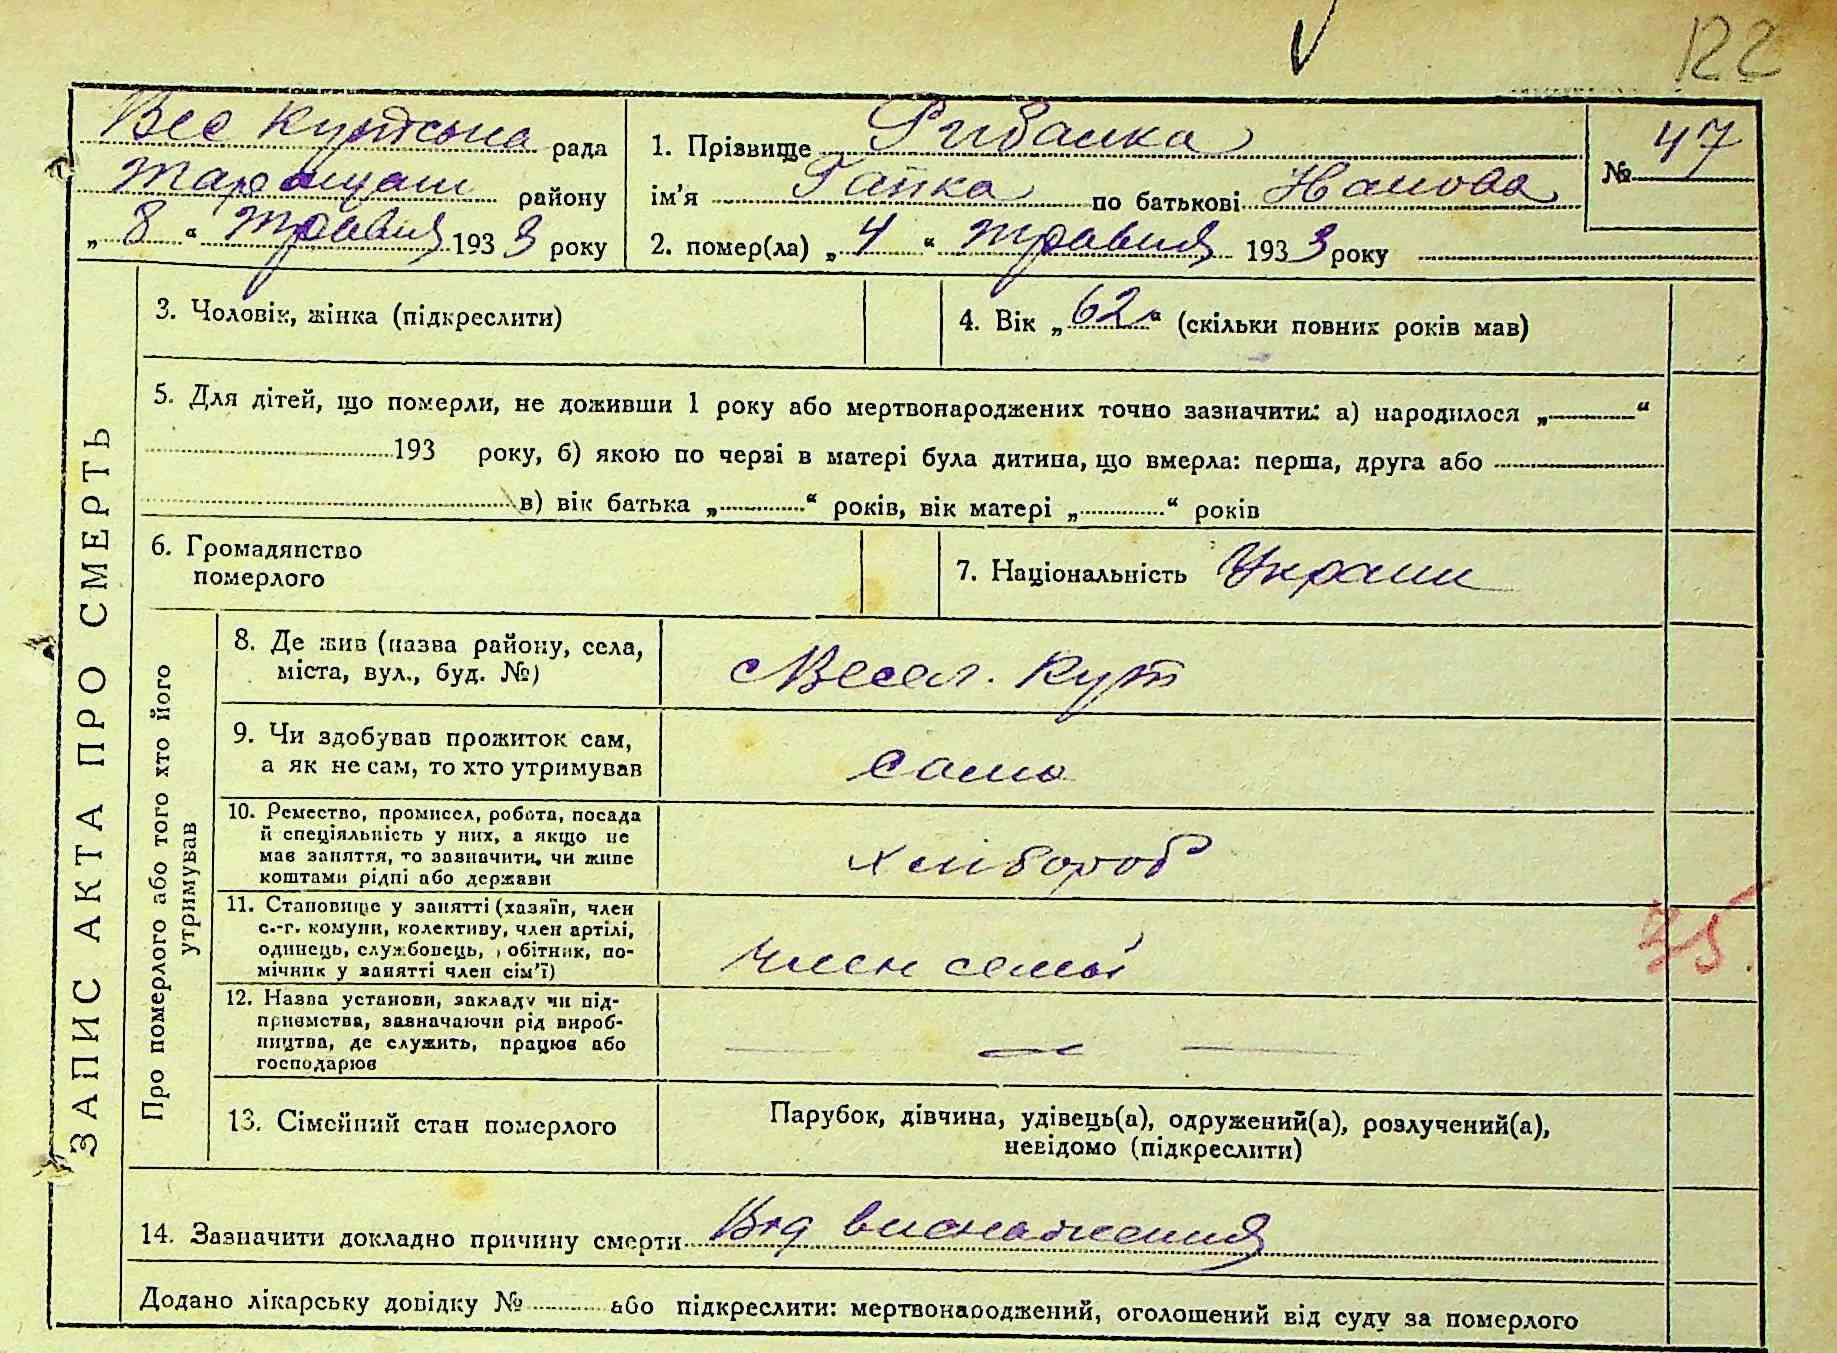 122
Вес Кутська рада
Таращан району
„ 8 “ травня 1933 року
1. Прізвище Рибалка
ім'я Гапка по батькові
2. помер(ла) „ 4 “ травня 1933 року
№ 47
3. Чоловік, жінка (підкреслити)
4. Вік „ 62 “ (скільки повних років мав)
5. Для дітей, що померли, не доживши 1 року або мертвонароджених точно зазначити: а) народилося „ “
193 року, б) якою по черзі в матері була дитина, що вмерла: перша, друга або
в) вік батька „ “ років, вік матері „ “ років
6. Громадянство
померлого
7. Національність Украин
ЗАПИС АКТА ПРО СМЕРТЬ
Про померлого або того хто його
утримував
8. Де жив (назва району, села,
міста, вул., буд. №)
с Весел. Кут
9. Чи здобував прожиток сам,
а як не сам, то хто утримував
сама
10. Ремество, промисел, робота, посада
й спеціяльність у них, а якщо не
мав заняття, то зазначити, чи живе
коштами рідні або держави
хлібороб
11. Становище у занятті (хазяїн, член
с.-г. комуни, колективу, член артілі,
одинець, службовець, обітник, по-
мічник у занятті член сім'ї)
член семьї
75
12. Назва установи, закладу чи під-
приємства, зазначаючи рід вироб-
ництва, де служить, працює або
господарює
13. Сімейний стан померлого
Парубок, дівчина, удівець(а), одружений(а), розлучений(а),
невідомо (підкреслити)
14. Зазначити докладно причину смерти Від виснаження
Додано лікарську довідку № або підкреслити: мертвонароджений, оголошений від суду за померлого